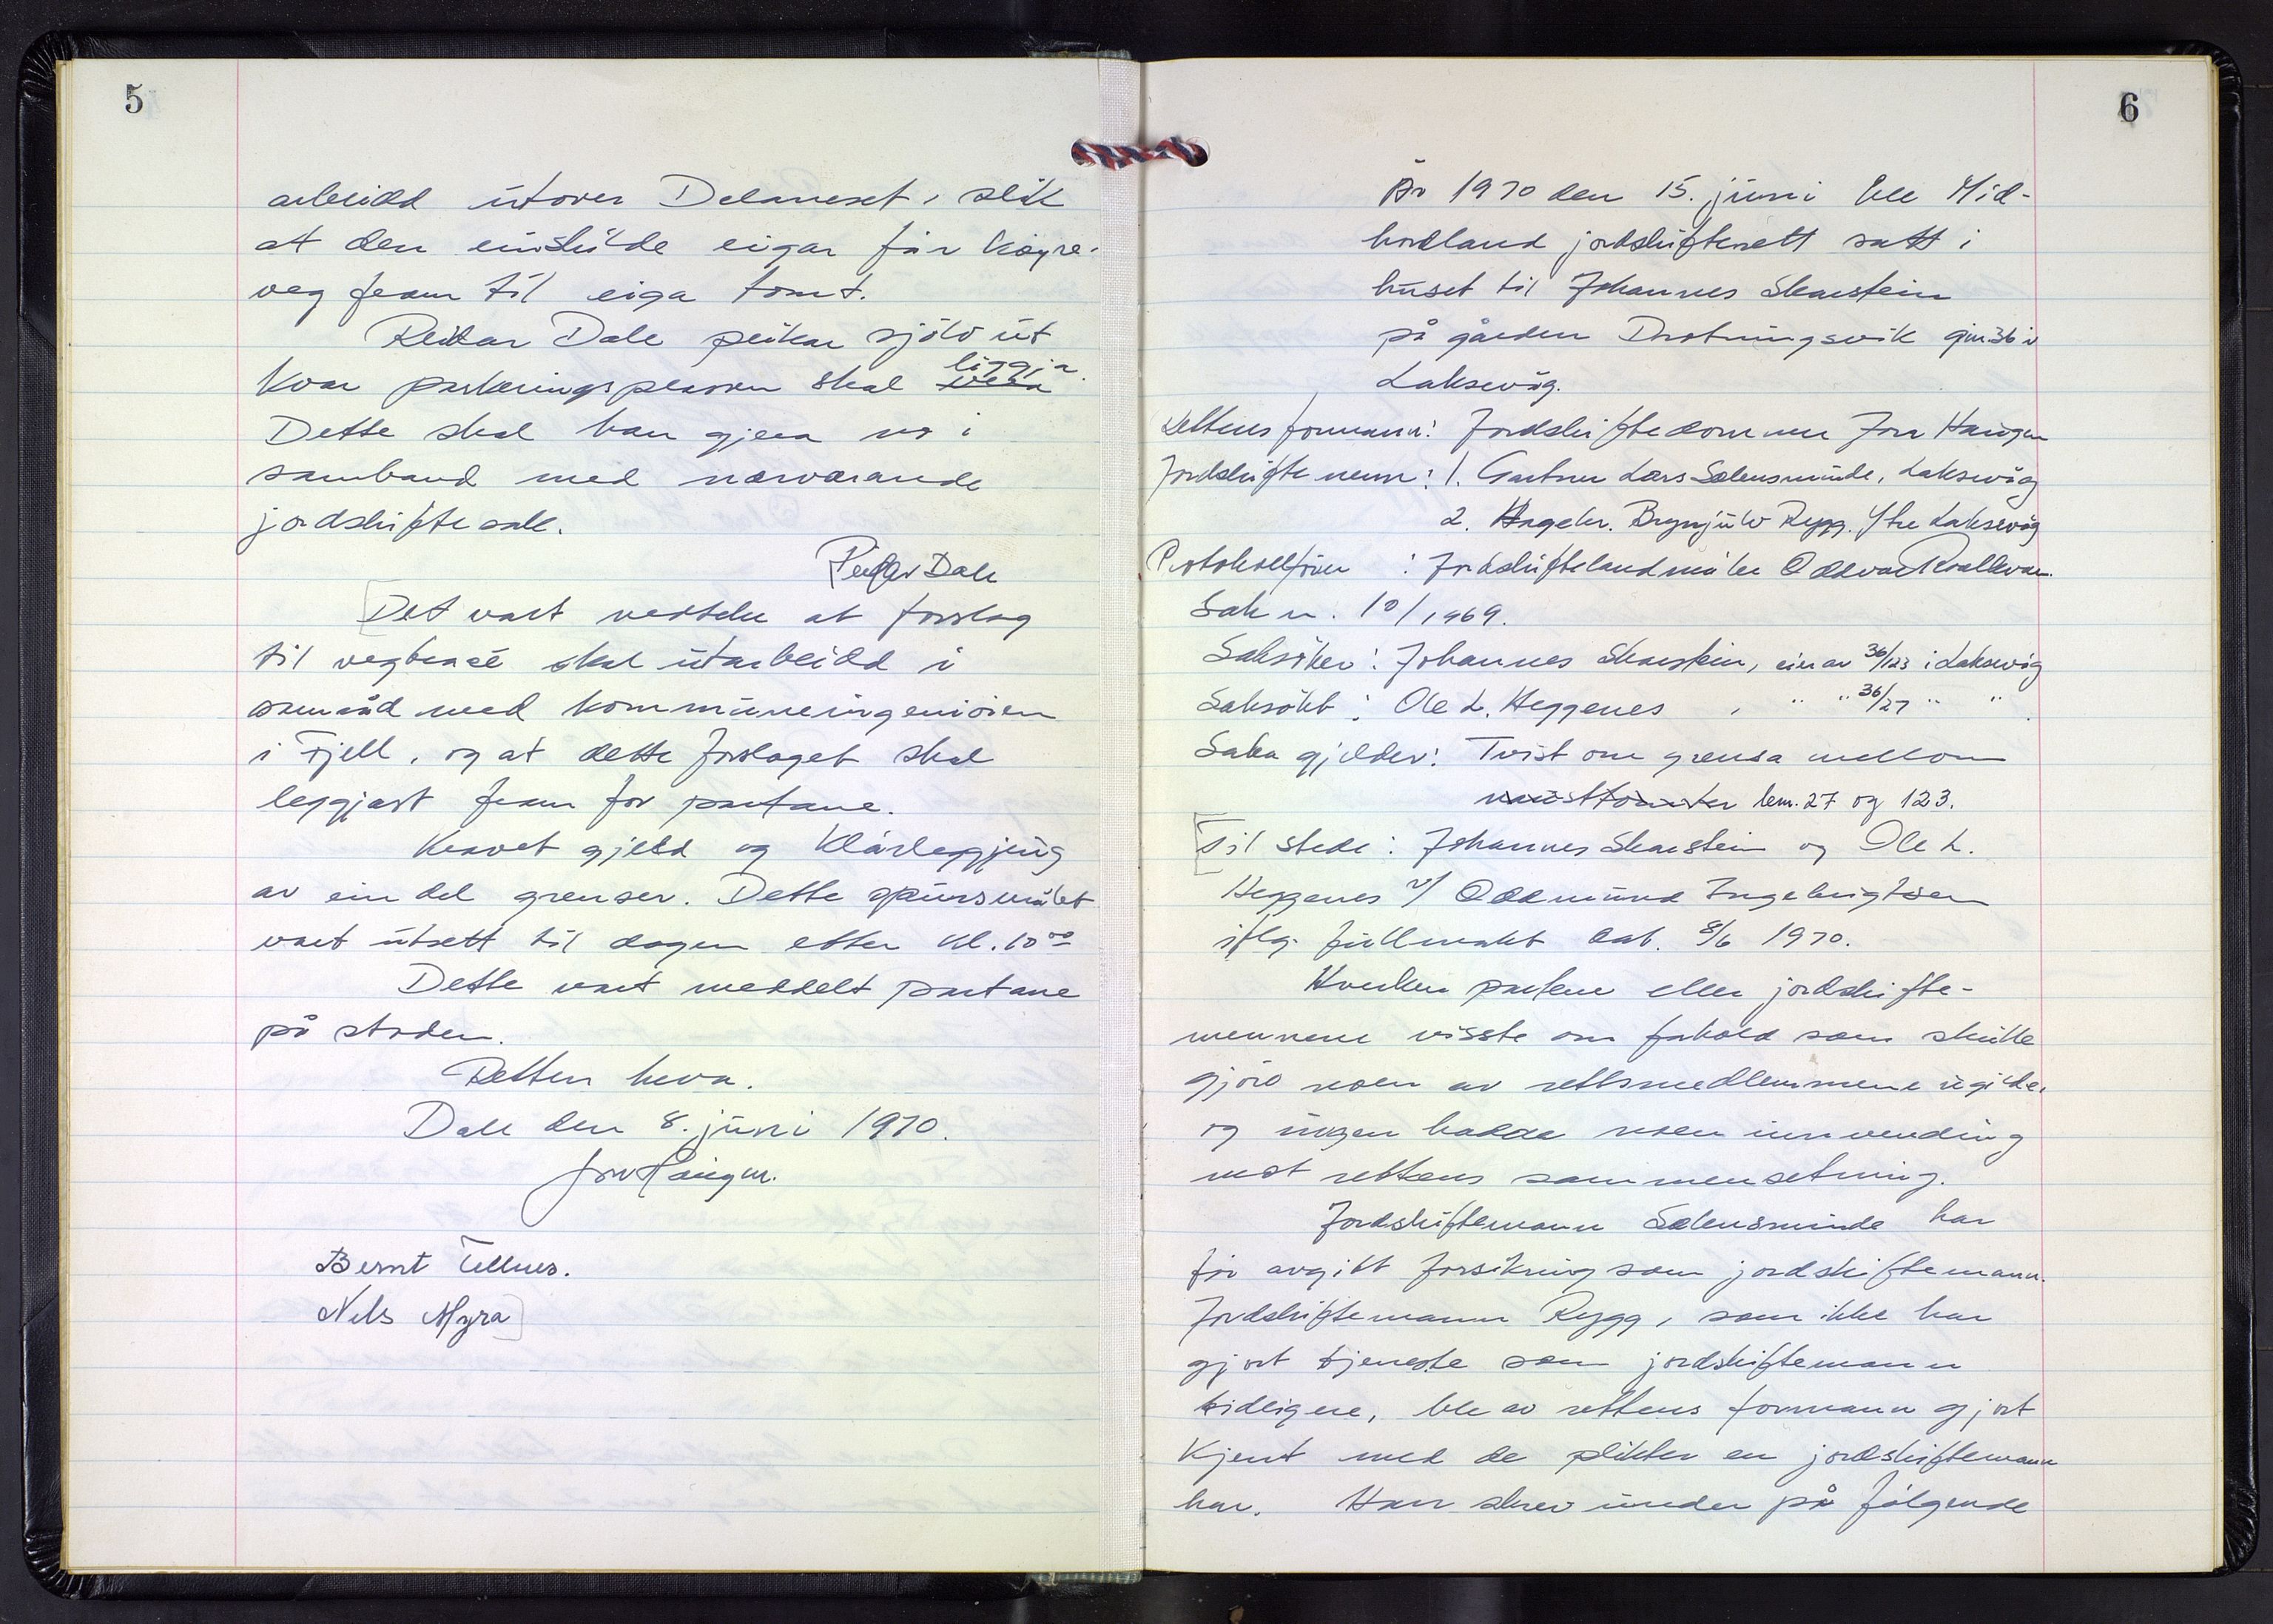 5
arbeidd utover Dalaneset, slik
at den einskilde eigar får köyre-
veg fram til eiga tomt.
Reidar Dale peikar sjölv ut
kvar parkeringsplassen skal vera liggja.
Dette skal han gjera no i
samband med nærværande
jordskiftesak.
Reidar Dale
Det vart vedteke at forslag
til vegtrasé skal utarbeidd i
samråd med kommuneingeniören
i Fjell, og at dette forslaget skal
leggjast fram for partane.
Kravet gjeld og klårleggjing
av ein del grenser. Dette spursmålet
vart utsett til dagen etter kl. 10⁰⁰
Dette vart meddelt partane
på staden.
Retten heva.
Dale den 8. juni 1970.
Jon Haugen.
Bernt Tellnes.
Nils Myra
6
År 1970 den 15. juni ble Mid-
hordland jordskifterett satt i
huset til Johannes Skarstein
på gården Drotningsvik gnr. 36 i
Laksevåg.
Rettens formann: Jordskiftedommer Jon Haugen
Jordskiftemenn: 1. Gartner Lars Salensminde, Laksevåg
2. Hagebr. Brynjulv Rygg. Ytre Laksevåg
Protokollförer : Jordskiftelandmåler Oddvar Roalkvam.
Sak nr. 10/1969.
Saksöker: Johannes Skarstein, eier av 36/123 i Laksevåg
Saksökt: Ole L. Heggenes , " " 36/27 " "
Saka gjelder: Tvist om grensa mellom
nausttomter bnr. 27 og 123.
Til stede: Johannes Skarstein og Ole L.
Heggenes v/ Oddmund Ingebrigtsen
iflg. fullmakt dat. 8/6 1970.
Hverken partene eller jordskifte-
mennene visste om forhold som skulle
gjöre noen av rettsmedlemmene ugilde,
og ingen hadde noen innvending
mot rettens sammensetning.
Jordskiftemann Salensminde har
för avgitt forsikring som jordskiftemann.
Jordskiftemann Rygg, som ikke har
gjort tjeneste som jordskiftemann
tidligere, ble av rettens formann gjort
kjent med de plikter en jordskiftemann
har. Han skrev under på fölgende